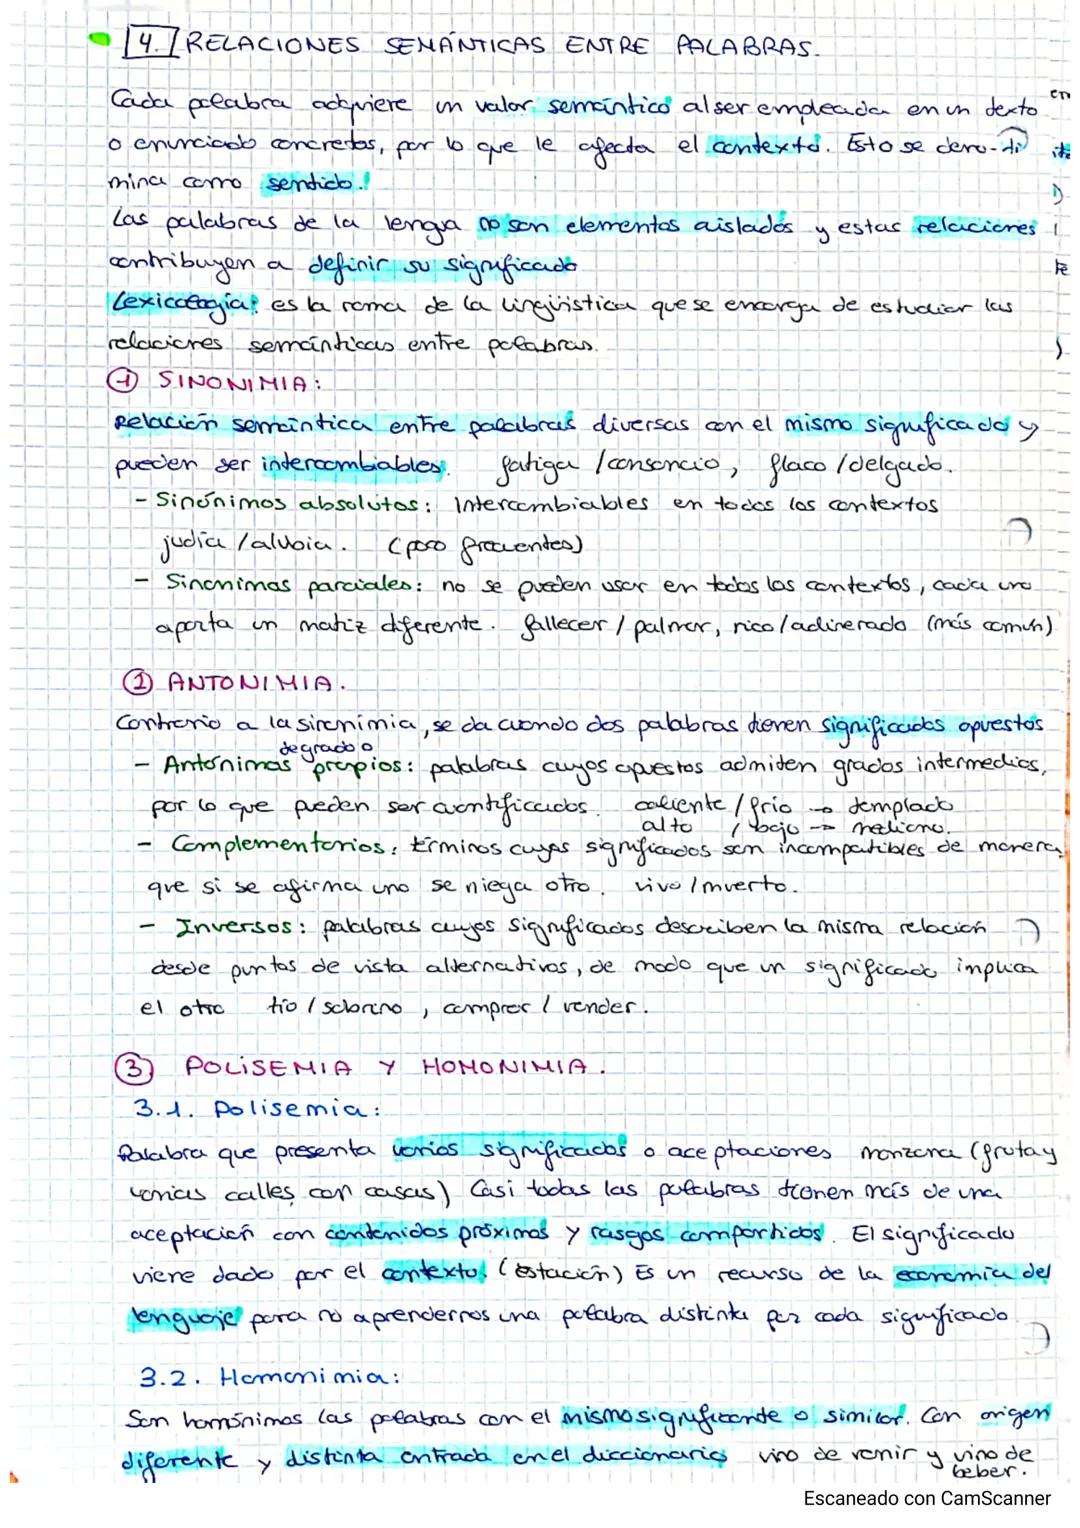 4. RELACIONES SEMÁNTICAS ENTRE PALABRAS.
Cada palabra adquiere un valor semántico al ser empleada en un texto
o enunciado concretos, por lo que le afecta el contexto. Esto se deno-
mina como sentido.
Las palabras de la lengua no son elementos aislados y estas relaciones
contribuyen a definir su significado
Lexicología: es la rama de la lingüística que se encarga de estudiar las
relaciones semánticas entre palabras.
1 SINONIMIA:
Relación semántica entre palabras diversas con el mismo significado y
pueden ser intercambiables. fatiga / cansancio, flaco / delgado.
- Sinónimos absolutos: Intercambiables en todos los contextos
judía / alubia. (poco frecuentes)
- Sinónimos parciales: no se pueden usar en todos los contextos, cada uno
aporta un matiz diferente. fallecer / palmar, rico / adinerado (más común)
2 ANTONIMIA.
Contrario a la sinonimia, se da cuando dos palabras tienen significados opuestos
de grado o
- Antónimos propios: palabras cuyos opuestos admiten grados intermedios,
por lo que pueden ser cuantificados. caliente / frío → templado
alto / bajo → mediano.
- Complementarios: términos cuyos significados son incompatibles de manera
que si se afirma uno se niega otro. vivo / muerto.
- Inversos: palabras cuyos significados describen la misma relación
desde puntos de vista alternativos, de modo que un significado implica
el otro tío / sobrino, comprar / vender.
3 POLISEMIA Y HOMONIMIA.
3.1. Polisemia:
Palabra que presenta varios significados o aceptaciones manzana (fruta y
varias calles con casas) Casi todas las palabras tienen más de una
aceptación con contenidos próximos y rasgos compartidos. El significado
viene dado por el contexto. (estación) Es un recurso de la economía del
lenguaje para no aprendernos una palabra distinta por cada significado
3.2. Homonimia:
Son homónimas las palabras con el mismo significante o similar. Con origen
diferente y distinta entrada en el diccionario vino de venir y vino de
beber.
Escaneado con CamScanner